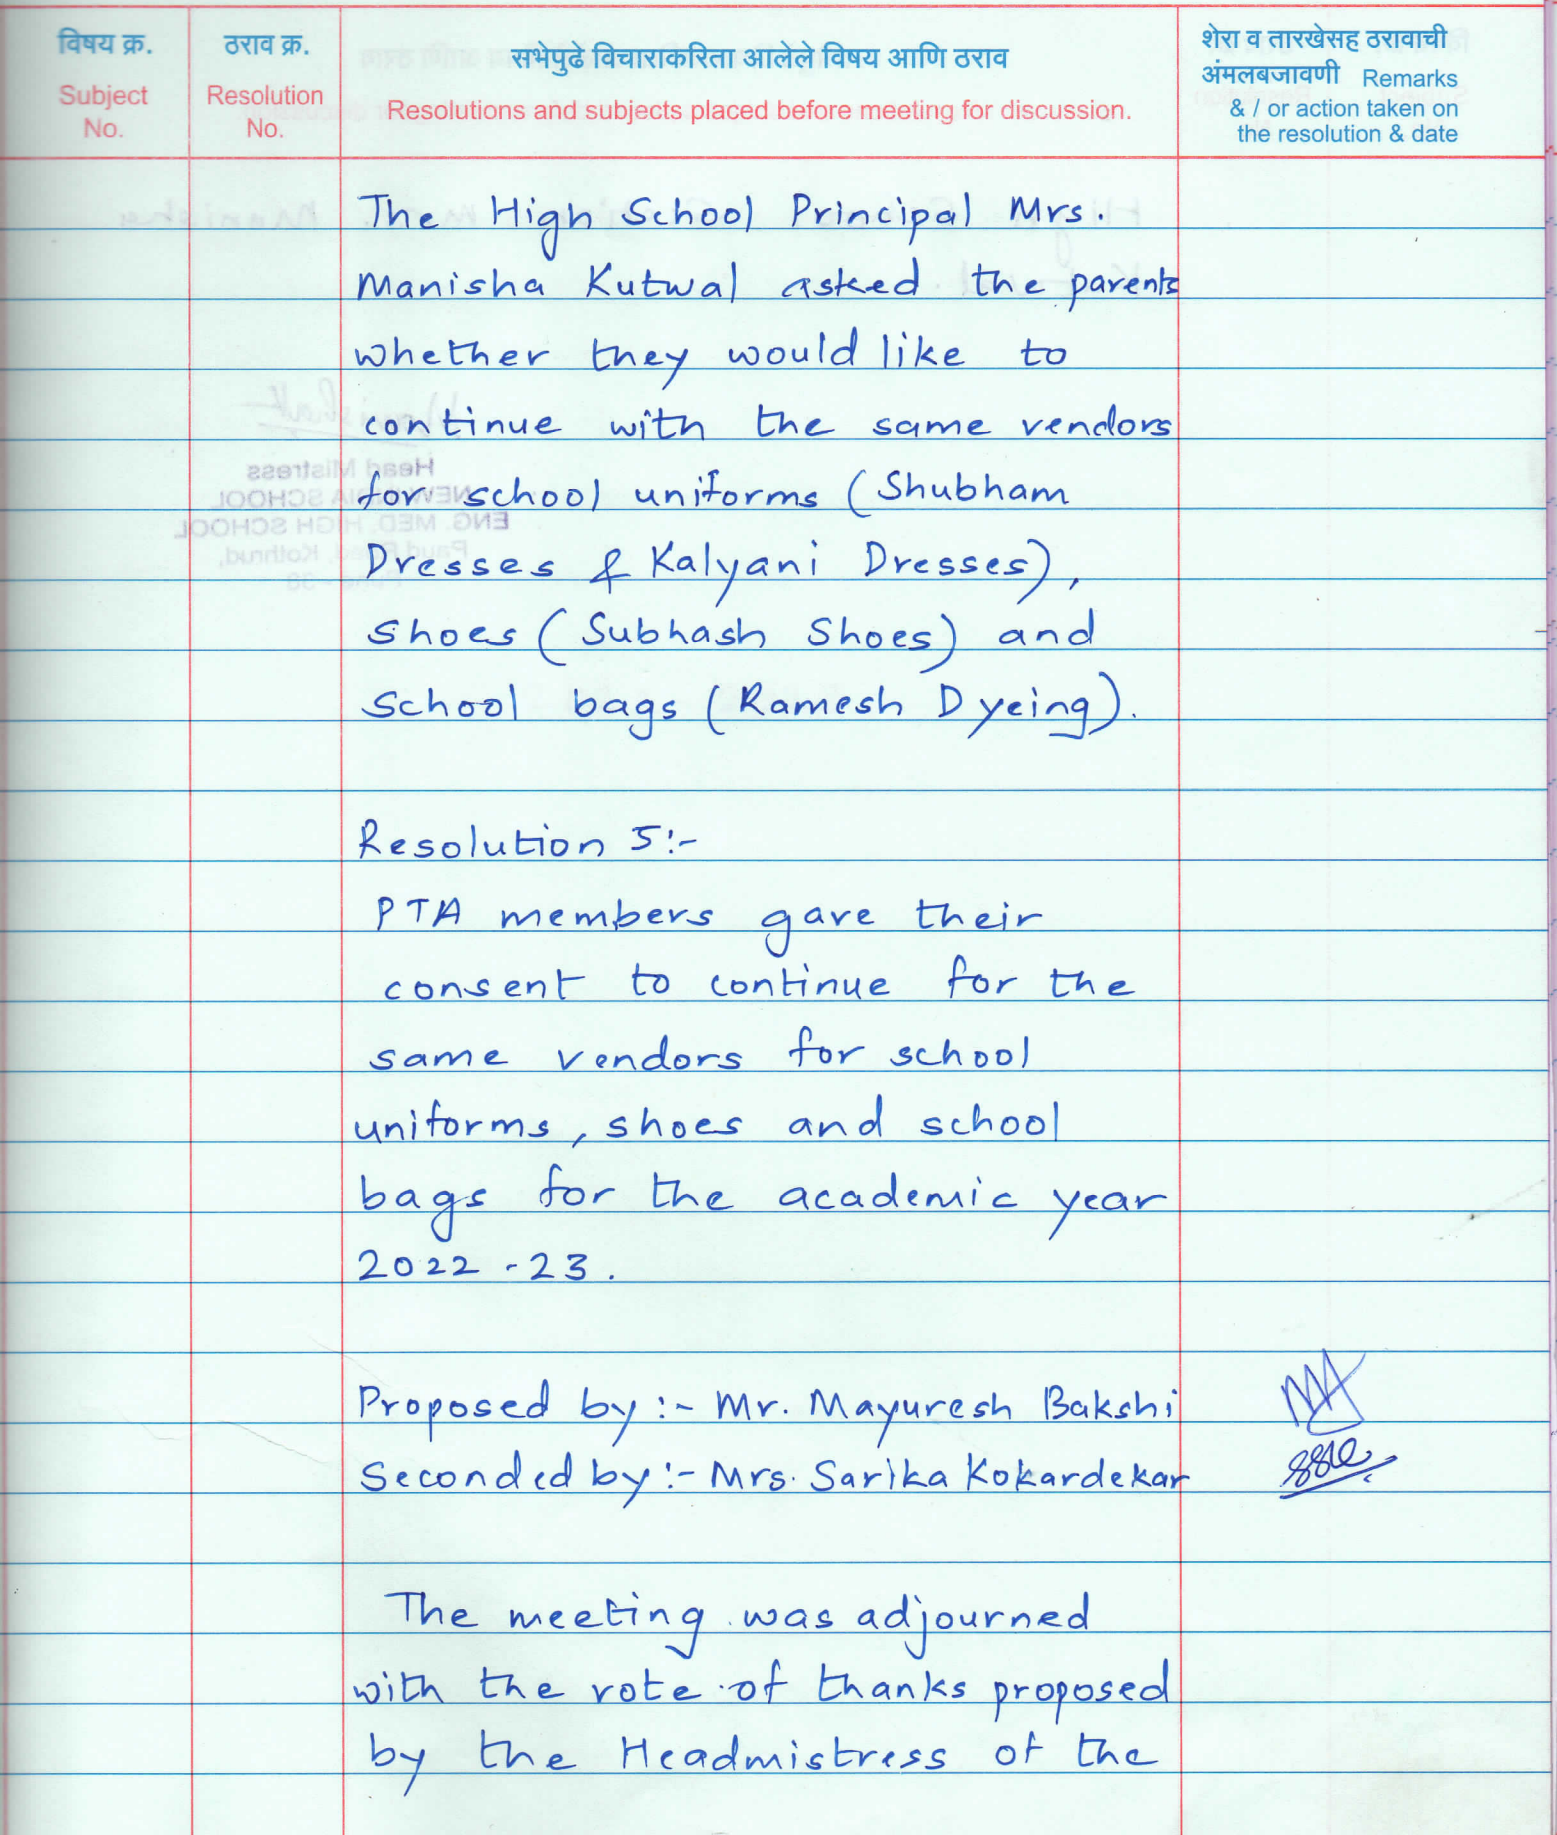 विषय क्र.
Subject
No.
ठराव क्र.
Resolution
No.
सभेपुढे विचाराकरिता आलेले विषय आणि ठराव
Resolutions and subjects placed before meeting for discussion.
शेरा व तारखेसह ठरावाची
अंमलबजावणी Remarks
& / or action taken on
the resolution & date
The High School Principal Mrs.
Manisha Kutwal asked the parents
whether they would like to
continue with the same vendors
for school uniforms (Shubham
Dresses & Kalyani Dresses),
shoes (Subhash Shoes) and
School bags (Ramesh Dyeing).
Resolution 5:-
PTA members gave their
consent to continue for the
same vendors for school
uniforms, shoes and school
bags for the academic year
2022-23.
Proposed by :- Mr. Mayuresh Bakshi
Seconded by :- Mrs. Sarika Kokardekar
The meeting was adjourned
with the vote of thanks proposed
by the Headmistress of the